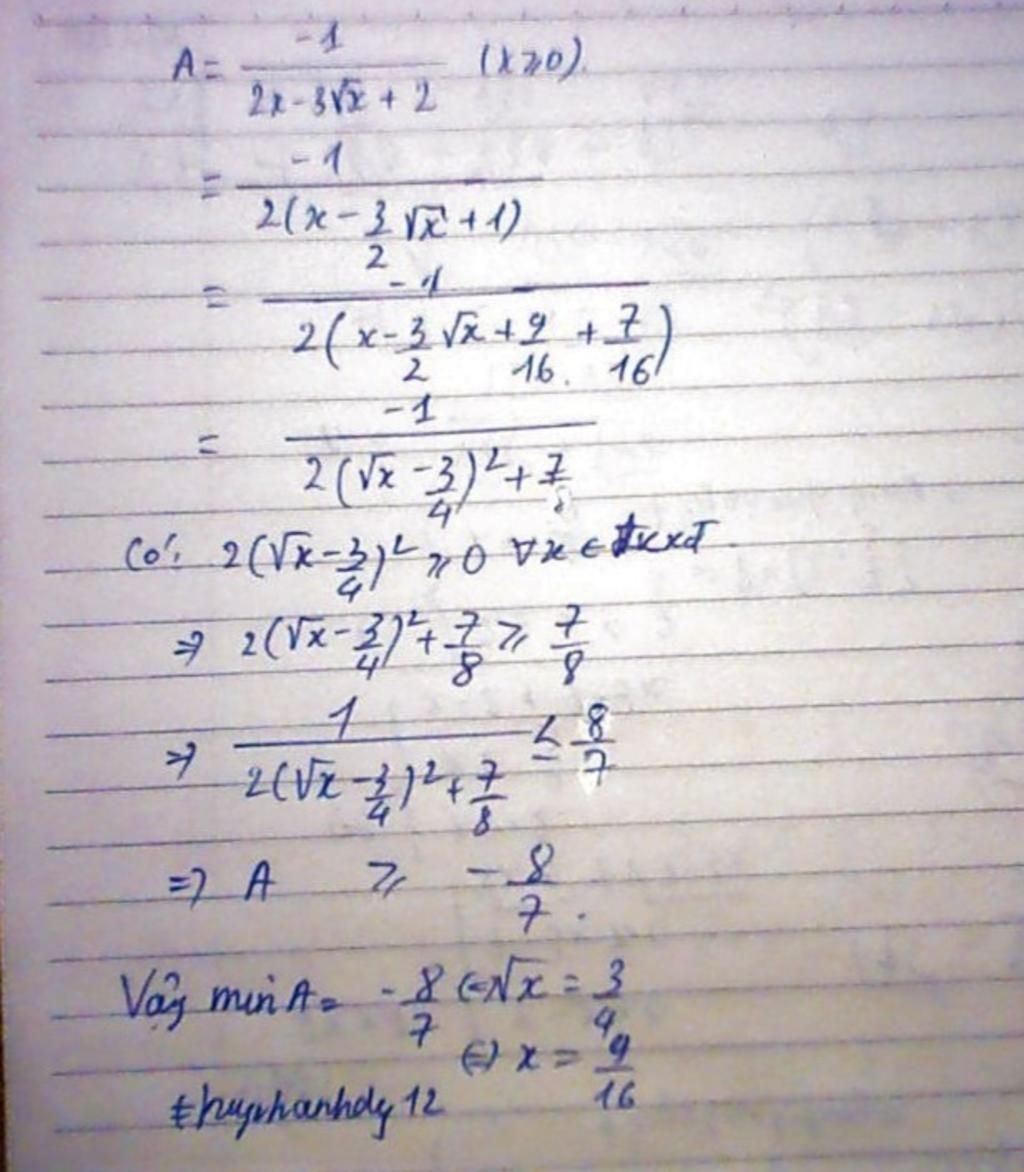 A = -1 / (2x - 3√x + 2) (x ≥ 0).
= -1 / 2(x - 3/2 √x + 1)
= -1 / 2(x - 3/2 √x + 9/16 + 7/16)
= -1 / 2(√x - 3/4)² + 7/8
Có: 2(√x - 3/4)² ≥ 0 ∀x ∈ txxđ.
⇒ 2(√x - 3/4)² + 7/8 ≥ 7/8
⇒ 1 / 2(√x - 3/4)² + 7/8 ≤ 8/7
⇒ A ≥ -8/7.
Vậy min A = -8/7 ⇔ √x = 3/4
⇔ x = 9/16